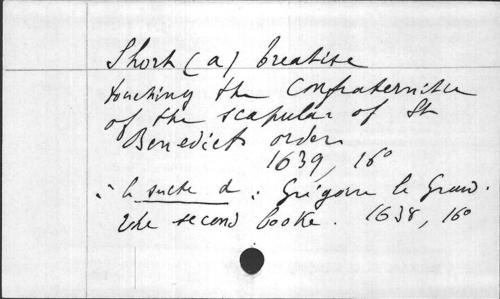 Short (a) treatise
touching the Confraternitie
of the scapular of St
Benedicts order
1639, 16°
à la suite d : Grégoire le Grand.
The second booke. 1638, 16°